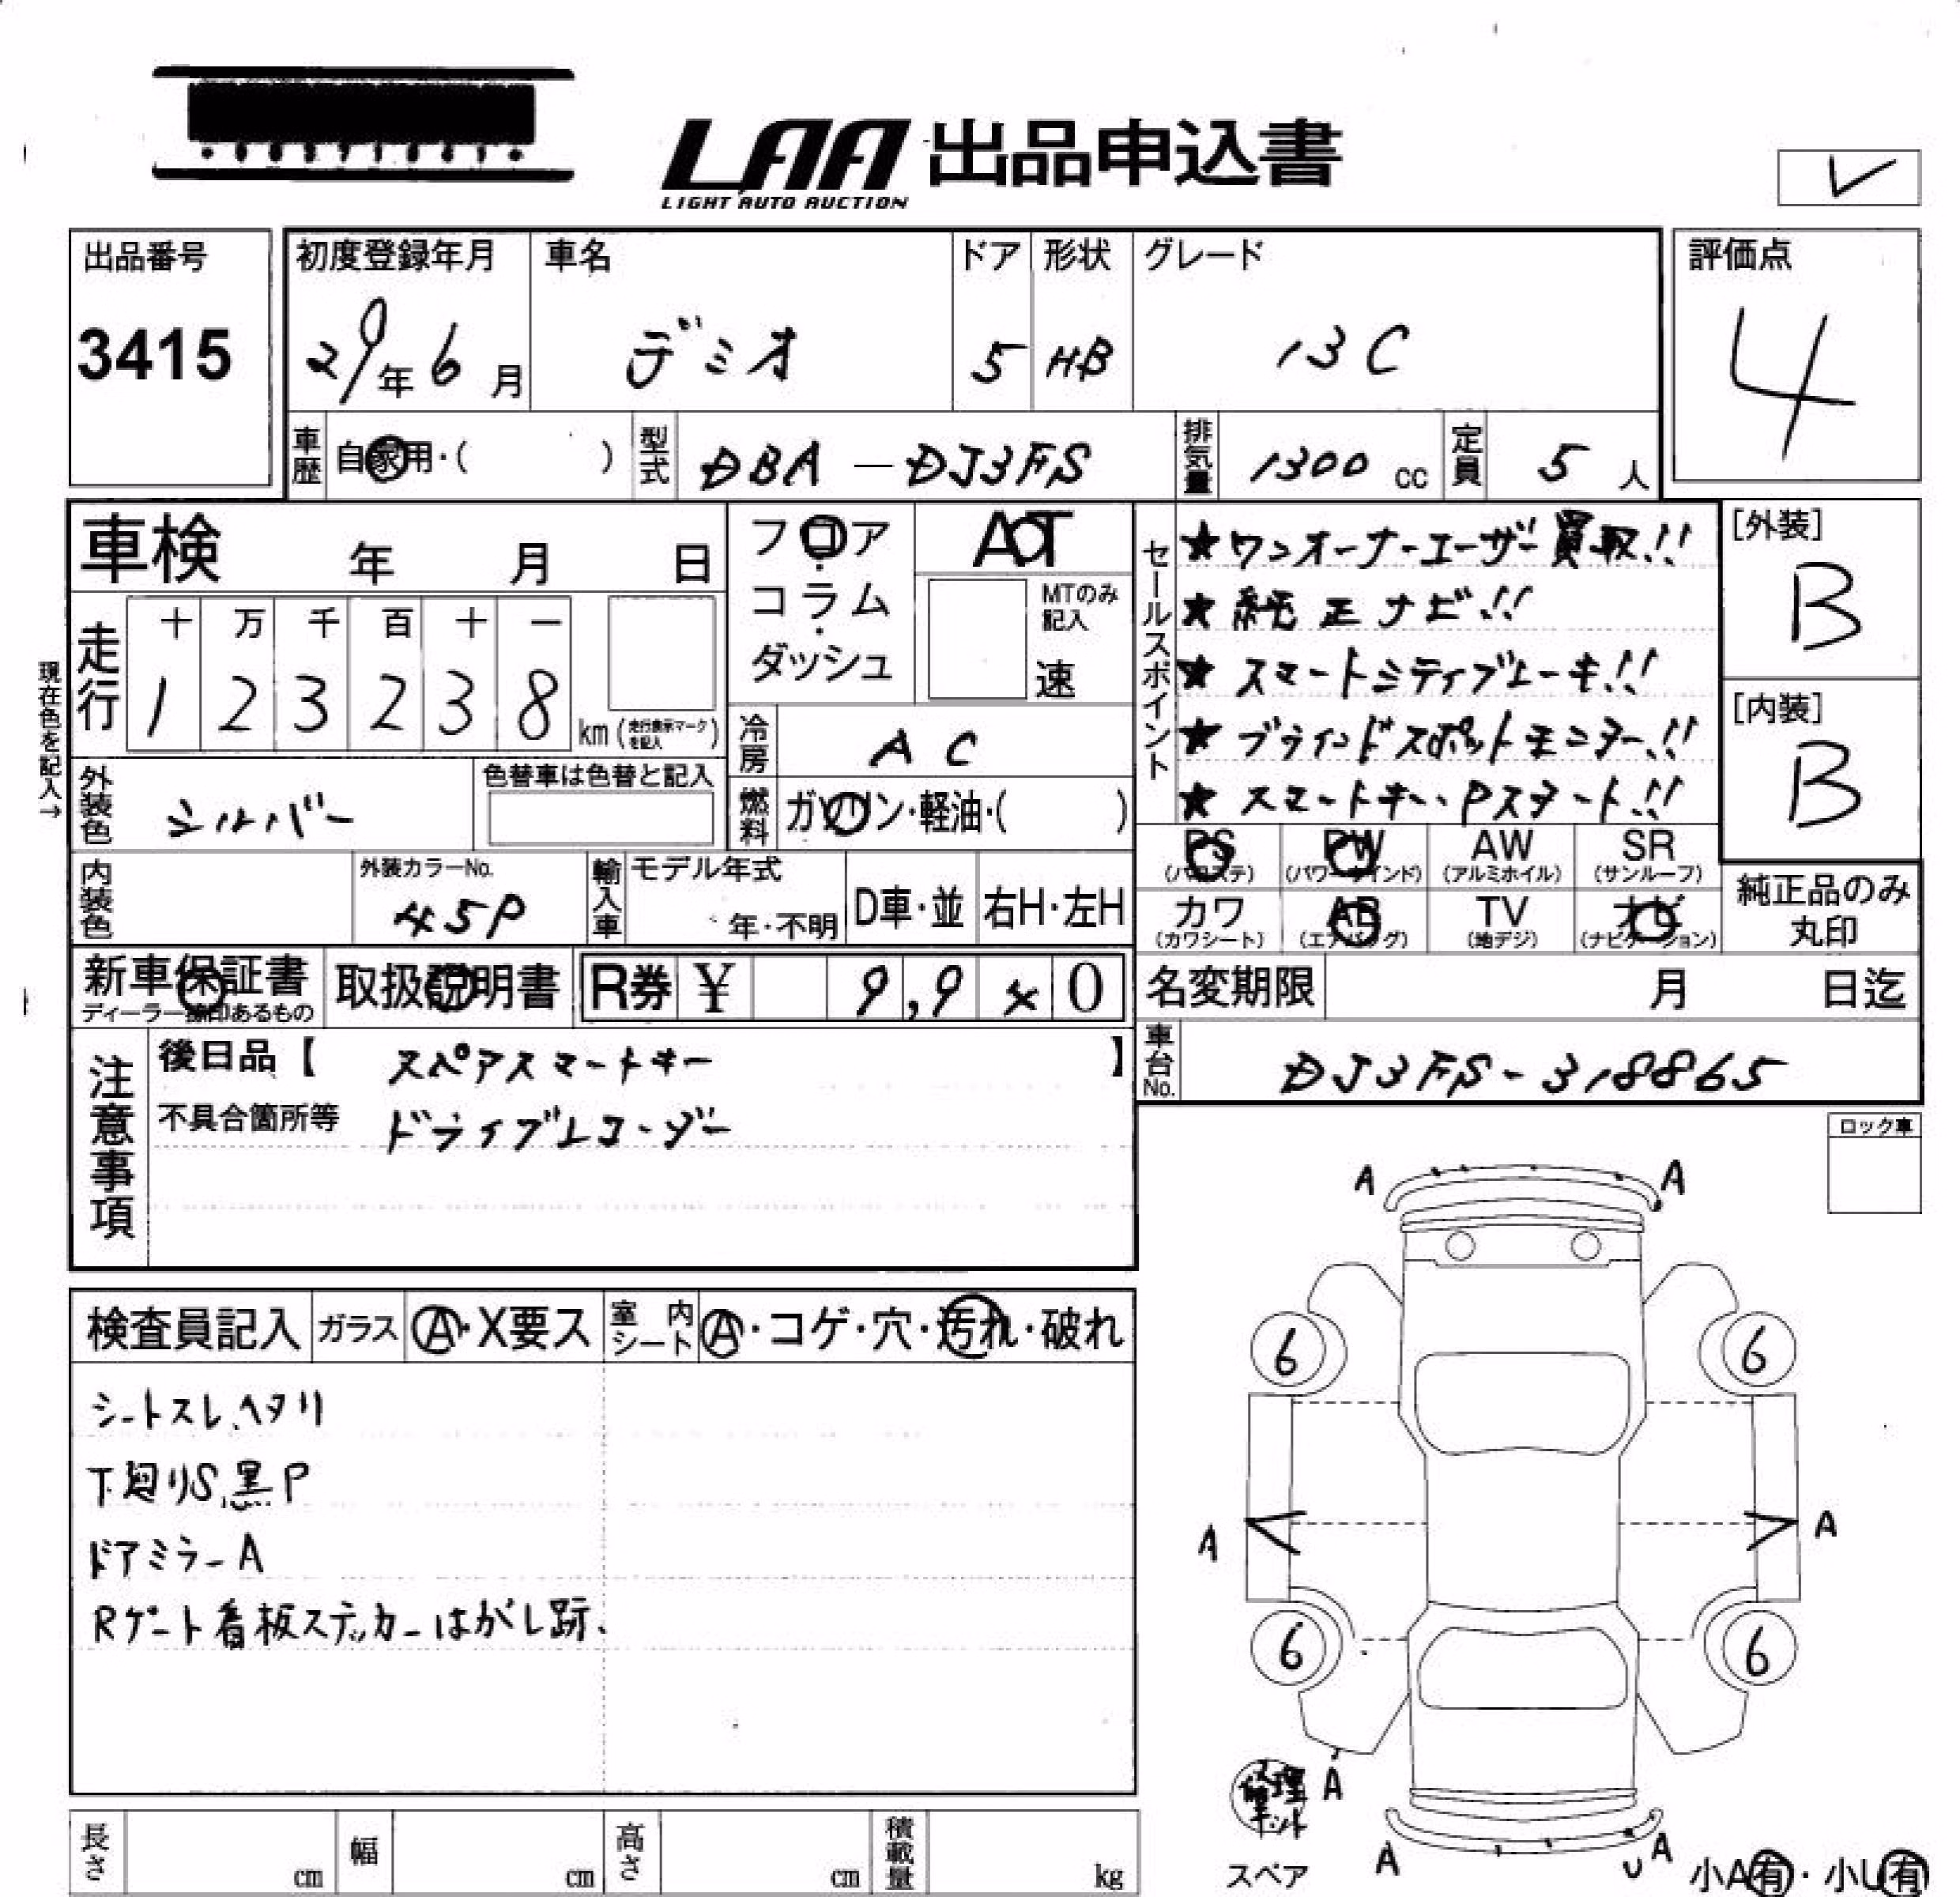 LAA 出品申込書
LIGHT AUTO AUCTION
✓
出品番号
3415
初度登録年月
29年6月
車名
デミオ
ドア
5
形状
HB
グレード
13C
評価点
4
車歴 自家用・( )
型式 DBA-DJ3FS
排気量 1300 cc
定員 5 人
車検 年 月 日
フロア・コラム・ダッシュ
AT
MTのみ記入
速
走行
十 万 千 百 十 一
1 2 3 2 3 8
km(走行表示マークを記入)
現在色を記入→
冷房 AC
燃料 ガソリン・軽油・( )
外装色 シルバー
色替車は色替と記入
内装色
外装カラーNo.
45P
輸入車
モデル年式
年・不明
D車・並
右H・左H
セールスポイント
★ワンオーナーユーザー買取!!
★純正ナビ!!
★スマートシティブレーキ!!
★ブラインドスポットモニター!!
★スマートキー・Pスタート!!
[外装]
B
[内装]
B
PS (パワステ)
PW (パワーウインド)
AW (アルミホイル)
SR (サンルーフ)
カワ (カワシート)
AB (エアバッグ)
TV (地デジ)
ナビ (ナビゲーション)
純正品のみ丸印
新車保証書
ディーラー捺印あるもの
取扱説明書
R券 ¥ 9,940
名変期限 月 日迄
車台No. DJ3FS-318865
注意事項
後日品【 スペアスマートキー 】
不具合箇所等 ドライブレコーダー
ロック車
検査員記入
ガラス A・X要ス
室内シート A・コゲ・穴・汚れ・破れ
シートスレ、ヘタリ
下廻りS、黒P
ドアミラーA
Rゲート看板ステッカーはがし跡、
A A
6 6
A A
6 6
修理キット A
スペア
A U A
小A有・小U有
長さ cm
幅 cm
高さ cm
積載量 kg